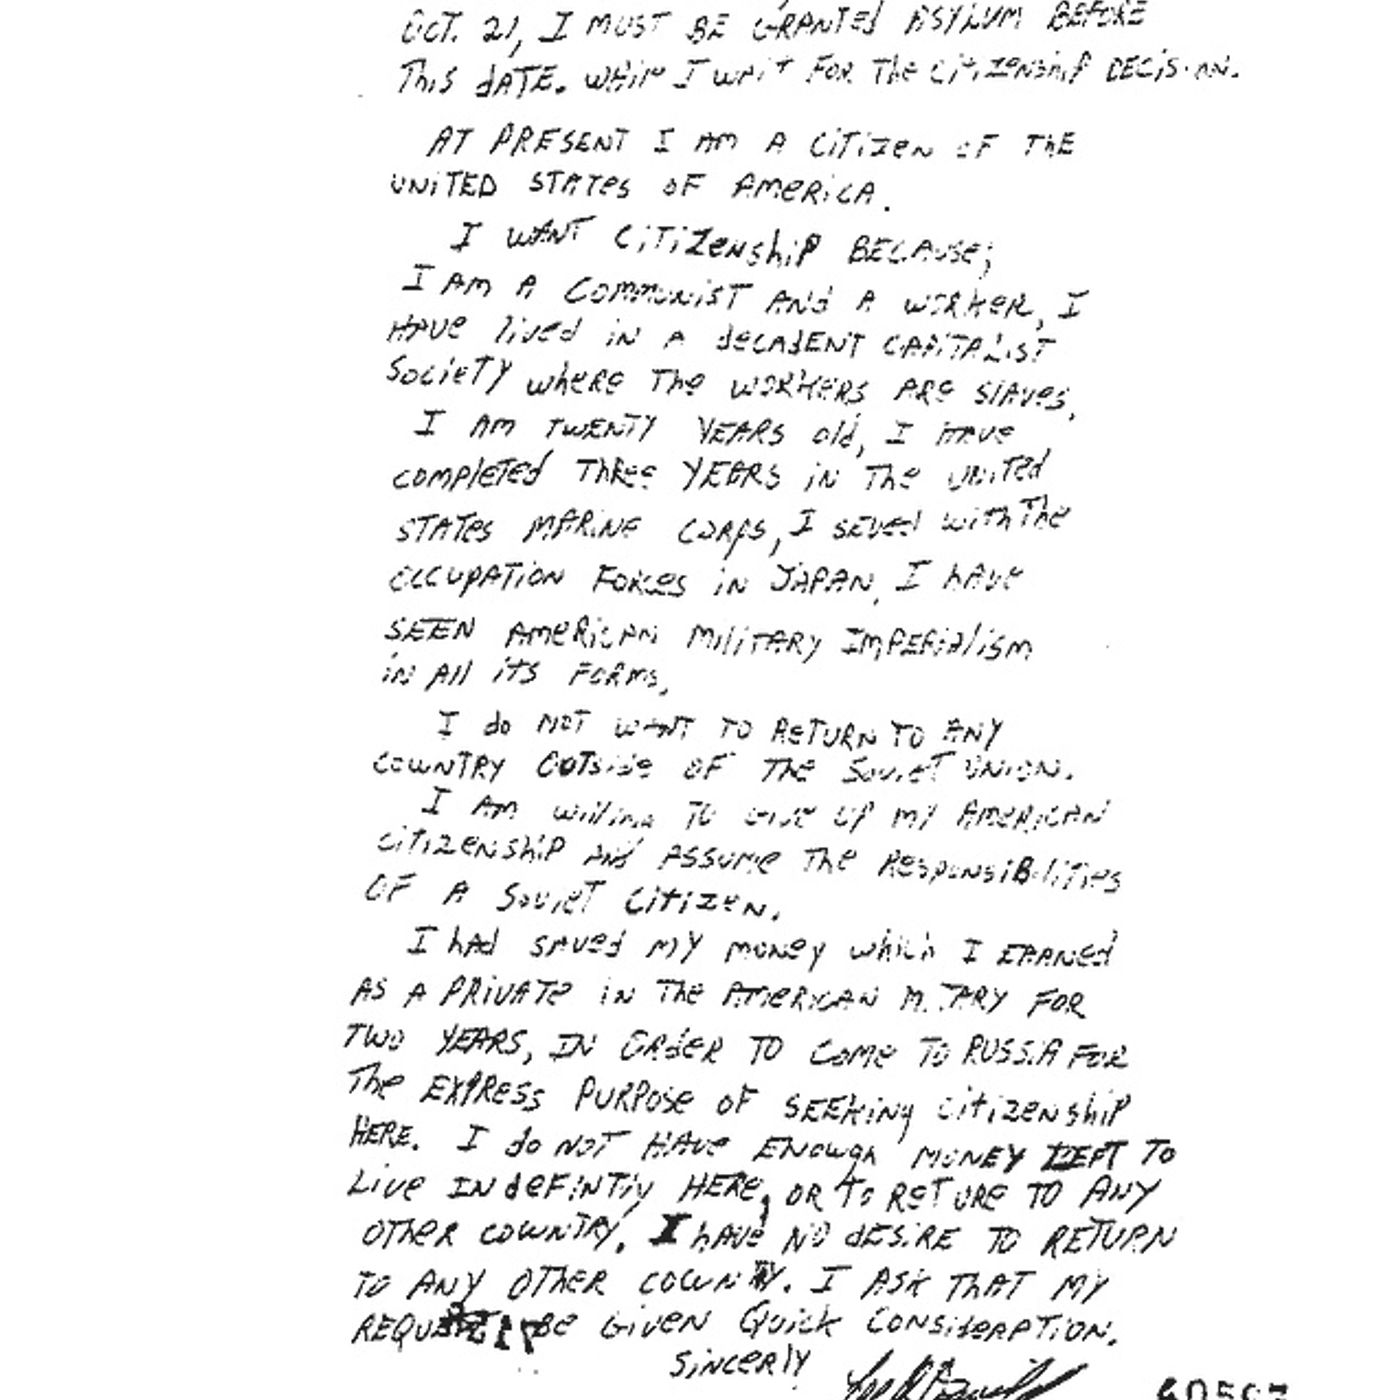 OCT. 21, I MUST BE GRANTEd ASYLUM BEFORE
This dATE. while I wait FOR The CiTiZenship DECISION.
AT PRESENT I AM A CiTizen OF THE
UNITED STATes OF AMERICA.
I WANT CiTiZenship BECAuse;
I AM A COMMUNIST ANd A WORKER, I
HAVE lived IN A decAdENT CAPITALIST
SocieTY where The WORKERS ARe slaves.
I AM TWENTY YEARS old, I HAVe
completed ThRee YEARS in The UNITed
STATES MARINE CORPS, I seved with The
OCCUPATION FORCES in JAPAN, I hAVe
SEEN AMERICAN MiliTARY IMPERialism
in All iTS FORMS.
I do NOT WANT TO ReTURN TO ANY
COUNTRY OUTSide OF The SovieT UNION.
I AM willing TO Give UP MY AMERICAN
CiTizenship ANd ASSUME The ResponsiBiliTies
OF A SovieT CiTizEN.
I hAd sAved MY money which I ERANed
AS A PRIVATe in The AMERICAN M.TARY FOR
TWO YEARS, IN ORdeR TO come To RUSSiA FOR
The EXPRess PURPOSe OF SEEKing citizenship
HERE. I do NOT HAVe ENOugh MONEY LEFT To
Live INdeFINTly HERe, OR To ReTURe TO ANY
OTHeR COUNTRY. I hAVe NO dESiRE TO RETURN
TO ANY OTHeR COUNTRY. I ASK ThAT MY
REQUEST BE GivEN Quick CONSideRATION.
SiNCERlY